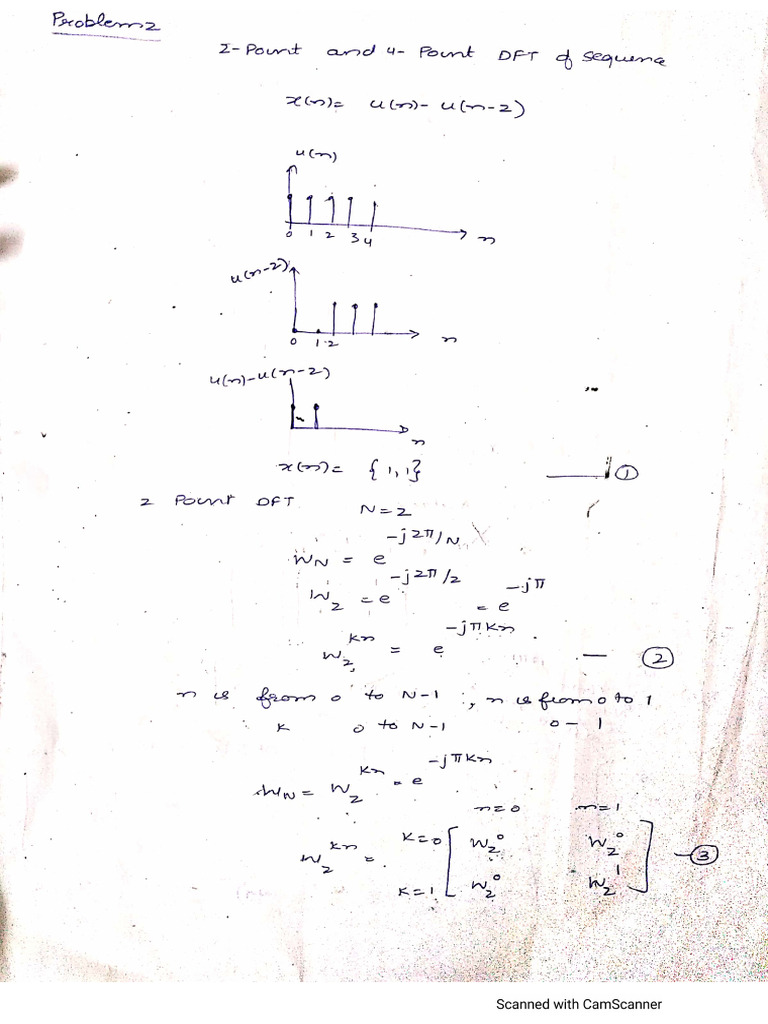 Problem 2
2-Point and 4-Point DFT of sequence
x(n)= u(n)-u(n-2)
u(n)
0 1 2 3 4 n
u(n-2)
0 1 2 n
u(n)-u(n-2)
n
x(n)= {1,1} — ①
2 Point DFT N=2
W_N = e^{-j2π/N}
W_2 = e^{-j2π/2} = e^{-jπ}
W_2^{kn} = e^{-jπkn} — ②
n is from 0 to N-1, n is from 0 to 1
K 0 to N-1 0-1
W_N = W_2^{kn} = e^{-jπkn}
n=0 n=1
W_2^{kn} = K=0 [ W_2^0 W_2^0 ] — ③
K=1 [ W_2^0 W_2^1 ]
Scanned with CamScanner